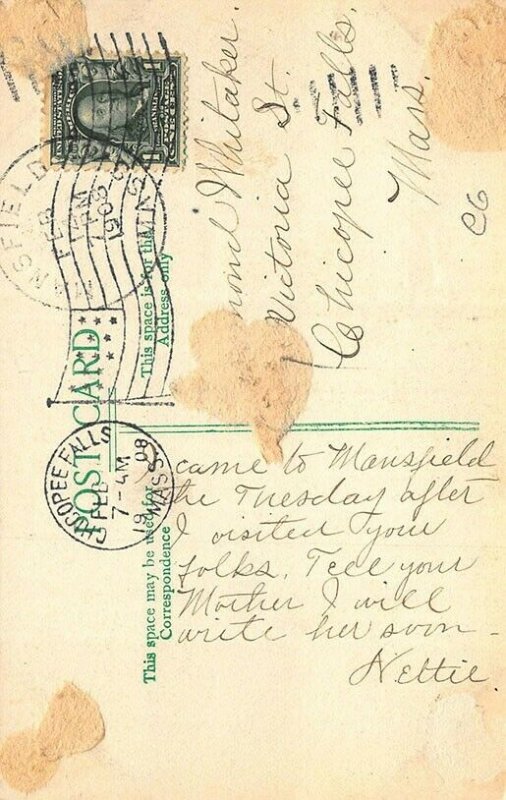 POST CARD
This space may be used for
Correspondence
This space is for the
Address only
MANSFIELD MASS.
FEB
1908
CHICOPEE FALLS
FEB
7-AM
1908
MASS.
came to Mansfield
the Tuesday after
I visited your
folks. Tell your
Mother I will
write her soon -
Nettie.
Whitaker.
Victoria St.
Chicopee Falls.
Mass.
C6